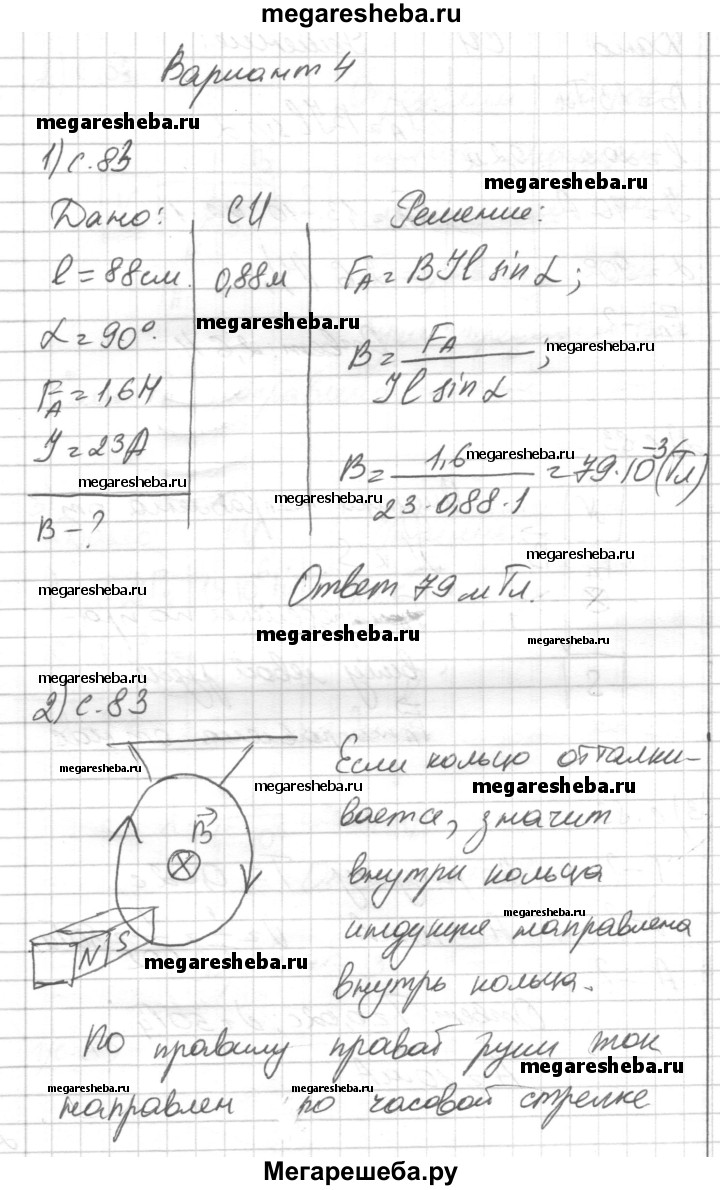 megaresheba.ru
Вариант 4
megaresheba.ru
1) с. 83
megaresheba.ru
Дано: СИ Решение:
l = 88 см. 0,88 м F_A = BIl sin α;
megaresheba.ru
α = 90°. B = F_A / Il sin α ; megaresheba.ru
F_A = 1,6 Н
I = 23 А
megaresheba.ru
B = 1,6 / 23 · 0,88 · 1 = 79 · 10⁻³ (Тл)
megaresheba.ru
megaresheba.ru
B - ?
megaresheba.ru
megaresheba.ru
Ответ 79 мТл.
megaresheba.ru
megaresheba.ru
megaresheba.ru
2) с. 83
megaresheba.ru
megaresheba.ru
megaresheba.ru
B⃗
N S
Если кольцо отталки-
вается, значит
внутри кольца
megaresheba.ru
индукция направлена
внутрь кольца.
megaresheba.ru
По правилу правой руки ток
megaresheba.ru
megaresheba.ru megaresheba.ru
направлен по часовой стрелке
Мегарешеба.ру